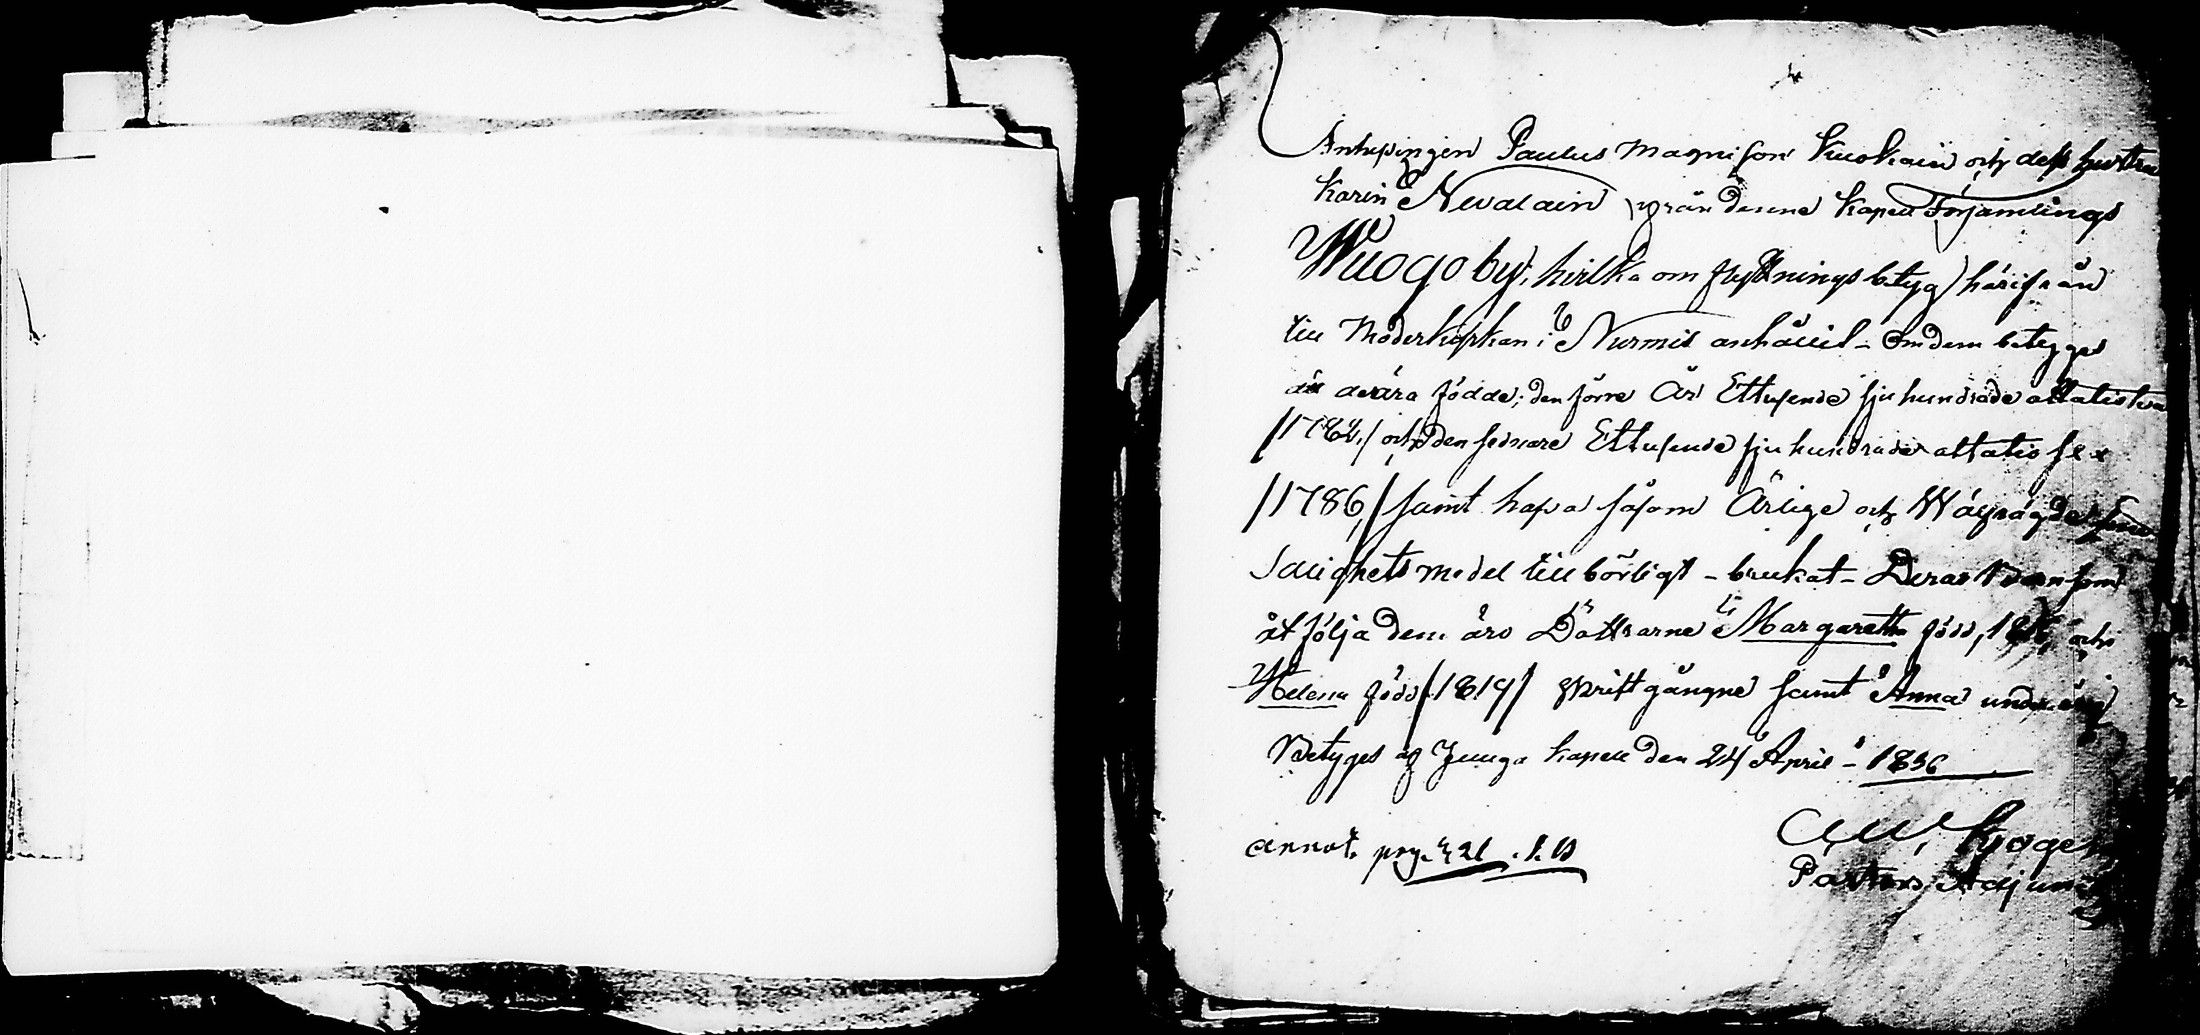 Inhysingen Paulus Magnisson Kuokain och dess hustru
Karin Nevalain från denne Kapell Församlings
Wuogo by, hvilka om flyttningsbetyg härifrån
till Moderkyrkan i Nurmis anhållit - Om dem betygas
att de äro födde; den förre År Ettusende sju hundrade åttatio två
/1782,/ och den sednare Ettusende sju hundrade åttatio sex
/1786,/ samt hafva såsom Ärlige och Wälfrägdade
Salighets medel tillbörligt - brukat - Deras Barn som
åtfölja dem äro Döttrarne Margaretha född, och
Helena född /1819/ skriftgångne samt Anna underårig
Betyges af Juuga Kapell den 24 April - 1836
Pastors Adjunct
annot. pag.